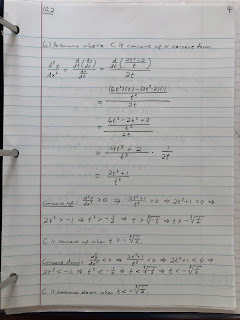 10.2
4
(c) Determine where C is concave up or concave down.
d²y/dx² = d/dt(dy/dx) / dx/dt = d/dt( ) / 2t
= (6t²)(t) - (2t³-2)(1) / t² / 2t
= 6t³ - 2t³ + 2 / t² / 2t
= 4t³ + 2 / t² · 1/2t
= 2t³+1 / t³
Concave up: d²y/dx² > 0 ⇒ 2t³+1 / t³ > 0 ⇒ 2t³+1 > 0 ⇒
2t³ > -1 ⇒ t³ > -1/2 ⇒ t > ∛-1/2 ⇒ t > -∛1/2
C is concave up when t > -∛1/2.
Concave down: d²y/dx² < 0 ⇒ 2t³+1 / t³ < 0 ⇒ 2t³+1 < 0 ⇒
2t³ < -1 ⇒ t³ < -1/2 ⇒ t < ∛-1/2 ⇒ t < -∛1/2
C is concave down when t < -∛1/2.